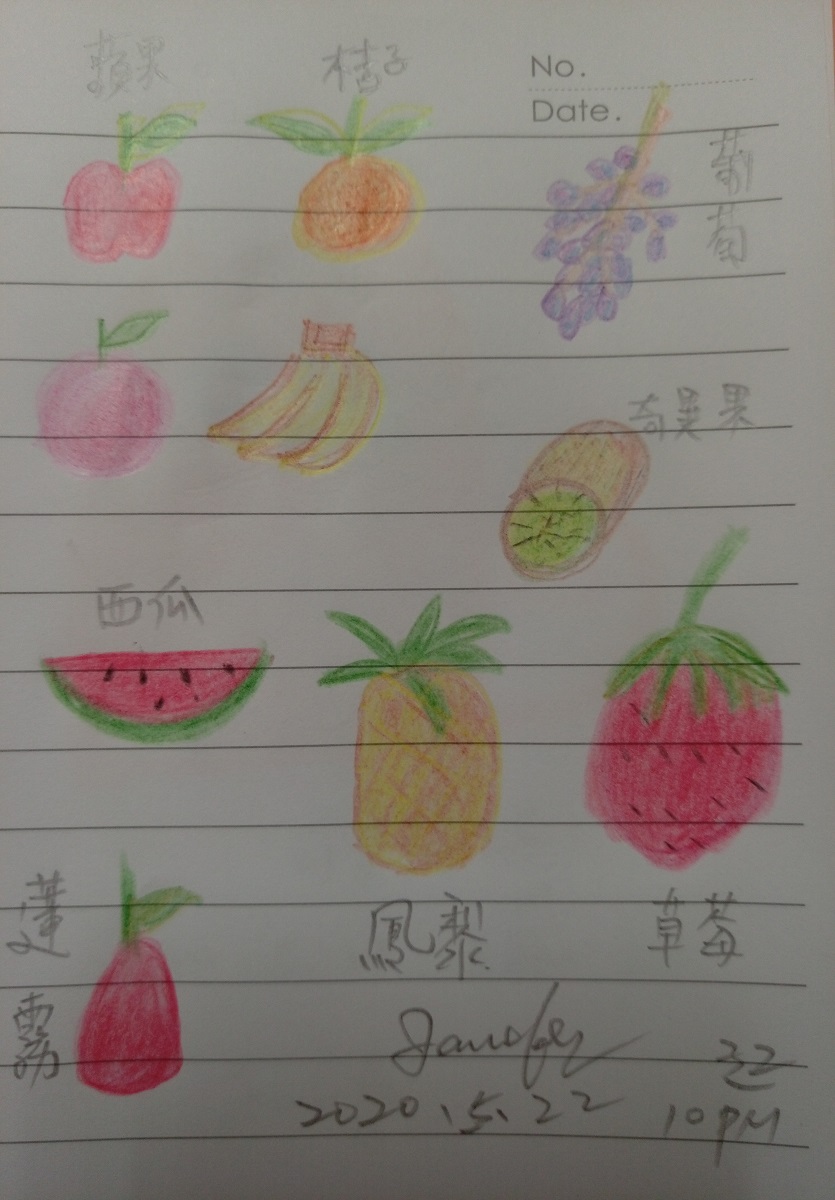 蘋果
橘子
No.
Date.
葡萄
奇異果
西瓜
蓮霧
鳳梨
草莓
2020.5.22
10PM